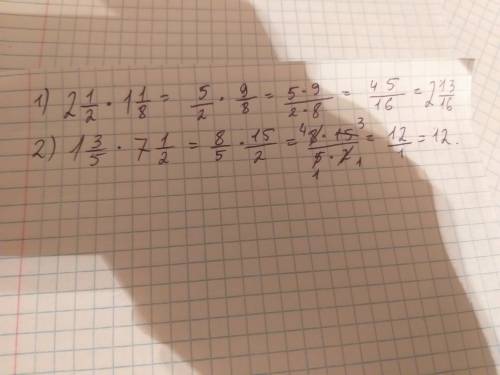 1) 2 1/2 · 1 1/8 = 5/2 · 9/8 = 5·9/2·8 = 45/16 = 2 13/16
2) 1 3/5 · 7 1/2 = 8/5 · 15/2 = 4 8·15 3/1 5·2 1 = 12/1 = 12.